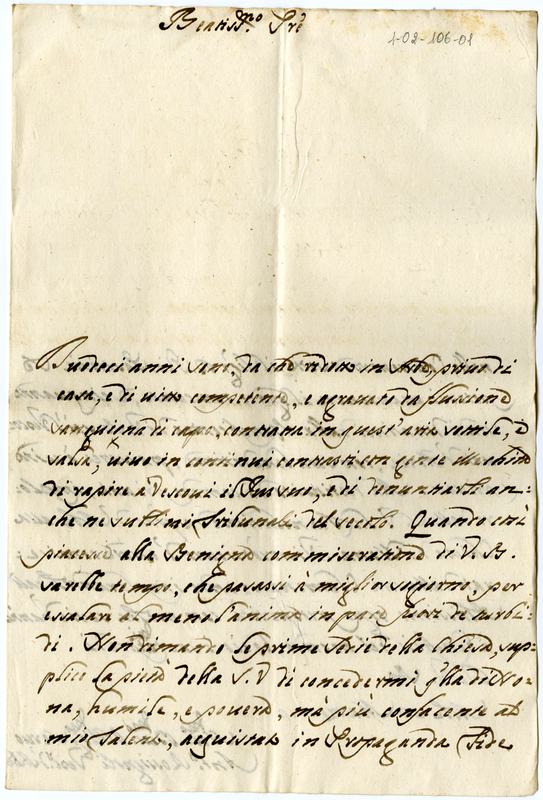 Beatiss.mo Pre
1-02-106-01
Duodeci anni sono, da che ridotto in stato privo di
casa, e di vitto competente, e agravato da flussione
sanguigna di capo, contratta in quest'aria sottile, e
salsa, vivo in continui contrasti con gente
di rapire a Vescovi il Ius suo, e di denuntiarli an-
che ne sublimi Tribunali del secolo. Quando così
piacesse alla Benigna commiseratione di V. B.
sarebbe tempo, che passassi à miglior sogiorno, per
essalare al meno l'anima in pace fuori de torbi-
di. Non dimando le prime Sedie della chiesa, sup-
plico la pietà della S. V di concedermi q'lla di No-
na, humile, e povera, mà più confacente al
mio Talento, acquistato in Propaganda Fide